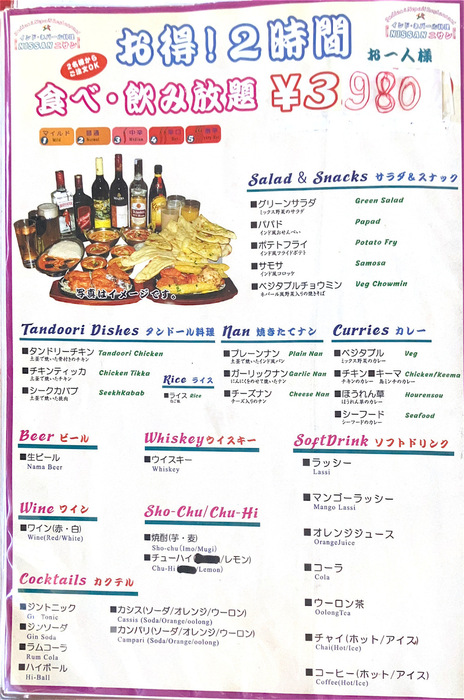 インド・ネパール料理
NISSAN ニサン
Indian & Nepal Restaurant
インド・ネパール料理
NISSAN ニサン
お得!2時間
お一人様
2名様から
ご注文OK
食べ・飲み放題 ¥3,980
マイルド 1 Mild
普通 2 Normal
中辛 3 Medium
辛口 4
激辛 5
写真はイメージです。
Salad & Snacks サラダ&スナック
■グリーンサラダ Green Salad
ミックス野菜のサラダ
■パパド Papad
インド風おせんべい
■ポテトフライ Potato Fry
インド風フライドポテト
■サモサ Samosa
インド風コロッケ
■ベジタブルチョウミン Veg Chowmin
ネパール風野菜入りの焼きそば
Tandoori Dishes タンドール料理
■タンドリーチキン Tandoori Chicken
土釜で焼いた骨付きのチキン
■チキンティッカ Chicken Tikka
土釜で焼いたチキン
■シークカバブ SeekhKabab
土釜で焼いた挽肉
Rice ライス
■ライス Rice
ご飯
Nan 焼きたてナン
■プレーンナン Plain Nan
土釜で焼いたインド風パン
■ガーリックナン Garlic Nan
にんにくをのせて焼いたナン
■チーズナン Cheese Nan
チーズ入りのナン
Curries カレー
■ベジタブル Veg
ミックス野菜のカレー
■チキン■キーマ Chicken/Keema
チキンのカレー 鳥ミンチのカレー
■ほうれん草 Hourensou
ほうれん草のカレー
■シーフード Seafood
シーフードのカレー
Beer ビール
■生ビール
Nama Beer
Whiskey ウイスキー
■ウイスキー
Whiskey
SoftDrink ソフトドリンク
■ラッシー
Lassi
■マンゴーラッシー
Mango Lassi
■オレンジジュース
OrangeJuice
■コーラ
Cola
■ウーロン茶
OolongTea
■チャイ(ホット/アイス)
Chai(Hot/Ice)
■コーヒー(ホット/アイス)
Coffee(Hot/Ice)
Wine ワイン
■ワイン(赤・白)
Wine(Red/White)
Sho-Chu/Chu-Hi
■焼酎(芋・麦)
Sho-chu(Imo/Mugi)
■チューハイ(/レモン)
Chu-Hi /Lemon)
Cocktails カクテル
■ジントニック
Gi Tonic
■ジンソーダ
Gin Soda
■ラムコーラ
Rum Cola
■ハイボール
Hi-Ball
■カシス(ソーダ/オレンジ/ウーロン)
Cassis (Soda/Orange/oolong)
■カンパリ(ソーダ/オレンジ/ウーロン)
Campari (Soda/Orange/oolong)